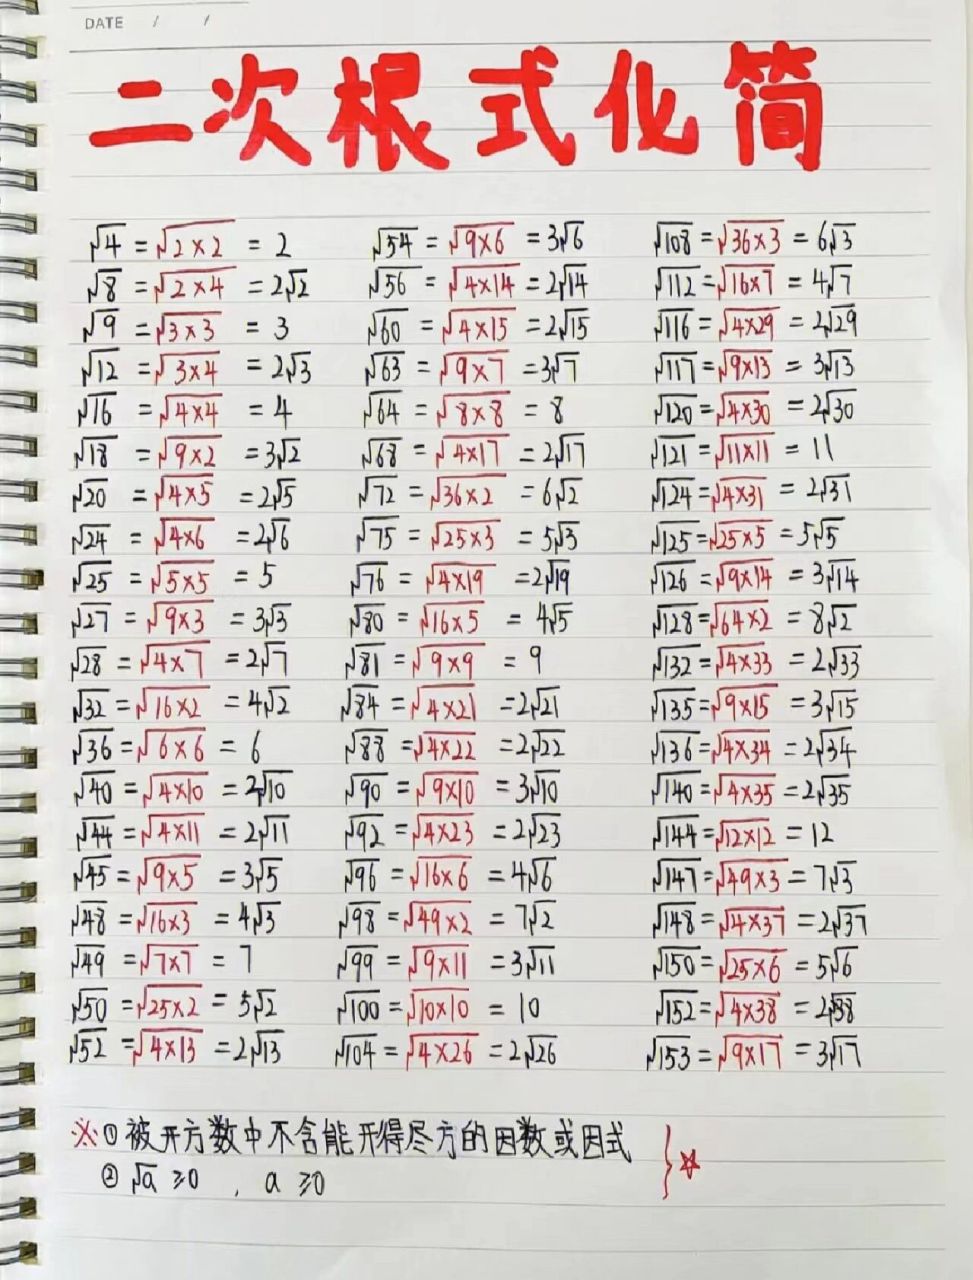 DATE / /
二次根式化简
√4 = √2×2 = 2
√8 = √2×4 = 2√2
√9 = √3×3 = 3
√12 = √3×4 = 2√3
√16 = √4×4 = 4
√18 = √9×2 = 3√2
√20 = √4×5 = 2√5
√24 = √4×6 = 2√6
√25 = √5×5 = 5
√27 = √9×3 = 3√3
√28 = √4×7 = 2√7
√32 = √16×2 = 4√2
√36 = √6×6 = 6
√40 = √4×10 = 2√10
√44 = √4×11 = 2√11
√45 = √9×5 = 3√5
√48 = √16×3 = 4√3
√49 = √7×7 = 7
√50 = √25×2 = 5√2
√52 = √4×13 = 2√13
√54 = √9×6 = 3√6
√56 = √4×14 = 2√14
√60 = √4×15 = 2√15
√63 = √9×7 = 3√7
√64 = √8×8 = 8
√68 = √4×17 = 2√17
√72 = √36×2 = 6√2
√75 = √25×3 = 5√3
√76 = √4×19 = 2√19
√80 = √16×5 = 4√5
√81 = √9×9 = 9
√84 = √4×21 = 2√21
√88 = √4×22 = 2√22
√90 = √9×10 = 3√10
√92 = √4×23 = 2√23
√96 = √16×6 = 4√6
√98 = √49×2 = 7√2
√99 = √9×11 = 3√11
√100 = √10×10 = 10
√104 = √4×26 = 2√26
√108 = √36×3 = 6√3
√112 = √16×7 = 4√7
√116 = √4×29 = 2√29
√117 = √9×13 = 3√13
√120 = √4×30 = 2√30
√121 = √11×11 = 11
√124 = √4×31 = 2√31
√125 = √25×5 = 5√5
√126 = √9×14 = 3√14
√128 = √64×2 = 8√2
√132 = √4×33 = 2√33
√135 = √9×15 = 3√15
√136 = √4×34 = 2√34
√140 = √4×35 = 2√35
√144 = √12×12 = 12
√147 = √49×3 = 7√3
√148 = √4×37 = 2√37
√150 = √25×6 = 5√6
√152 = √4×38 = 2√38
√153 = √9×17 = 3√17
※①被开方数中不含能开得尽方的因数或因式
②√a ≥0 , a ≥0